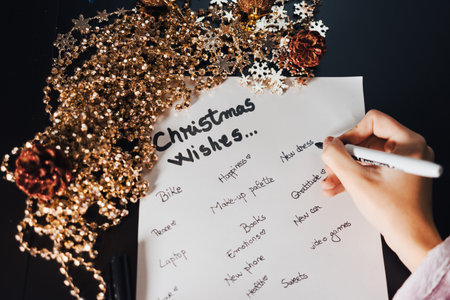 Christmas
Wishes...
Bike
Happiness
New dress
Peace
Make-up palette
Gratitude
Laptop
Books
New car
Emotions
video games
New phone
Health
Sweets